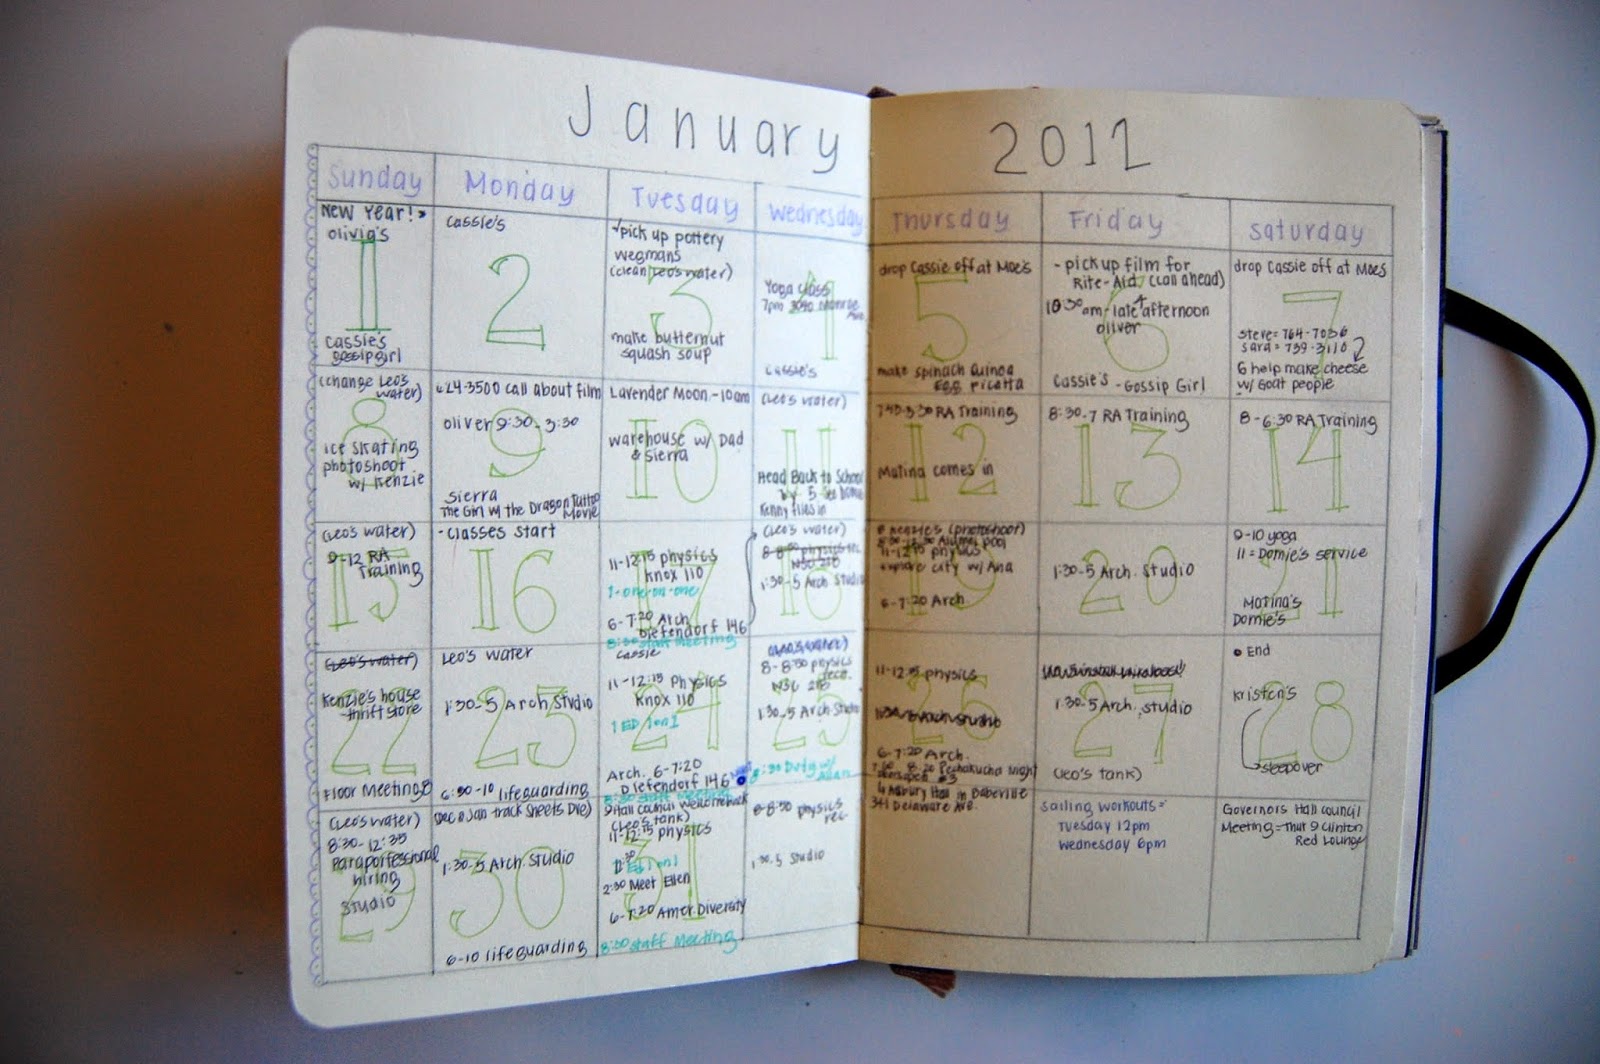 January 2012
Sunday Monday Tuesday Wednesday Thursday Friday Saturday
New Year!
Olivia's
1
Cassie's
gossip girl
Cassie's
2
pick up pottery
wegmans
(clean Leo's water)
3
make butternut
squash soup
Yoga class
7pm 3040 Monroe
4
Cassie's
drop Cassie off at Moe's
5
make spinach Quinoa
Egg ricatta
- pick up film for
Rite-Aid (call ahead)
10:30am - late afternoon
oliver
6
Cassie's - Gossip Girl
drop Cassie off at Moe's
7
steve = 764-7036
sara = 739-3110
6 help make cheese
w/ Goat people
(change Leo's
water)
8
ice skating
photoshoot
w/ Kenzie
624-3500 call about film
oliver 9:30-3:30
9
Sierra
The Girl w/ the Dragon Tattoo
Movie
Lavender Moon - 10am
warehouse w/ Dad
& Sierra
10
(Leo's water)
11
Head Back to School
Kenny flies in
RA Training
12
Matina comes in
8:30-7 RA Training
13
8-6:30 RA Training
14
(Leo's water)
9-12 RA
Training
15
- classes start
16
11-12:15 physics
Knox 110
1-one-on-one
17
6-7:20 Arch
Diefendorf 146
8:30 staff Meeting
(Leo's water)
8-8:50 physics rec
1:30-5 Arch Studio
18
Kenzie's (photoshoot)
11-12:15 physics
explore city w/ Ana
19
6-7:20 Arch
1:30-5 Arch. Studio
20
9-10 yoga
11 = Domie's service
21
Matina's
Domie's
(Leo's water)
22
Kenzie's house
thrift store
Floor Meeting 8
Leo's water
1:30-5 Arch Studio
23
6:30-10 lifeguarding
Cassie
11-12:15 Physics
Knox 110
1 ED 1on1
24
Arch. 6-7:20
Diefendorf 146
8:30 staff Meeting
8-8:50 physics
rec.
1:30-5 Arch Studio
25
8:30 Duty w/
11-12:15 physics
26
6-7:20 Arch.
8:20 Pechakucha Night
Asbury Hall in Babeville
341 Delaware Ave.
1:30-5 Arch. Studio
27
(Leo's tank)
• End
Kristen's
28
sleepover
(Leo's water)
8:30-12:35
Paraporfessional
hiring
Studio
29
(Dec & Jan track sheets Due)
1:30-5 Arch Studio
30
6-10 lifeguarding
(Leo's tank)
11-12:15 physics
1on1
2:30 Meet Ellen
31
6-7:20 Amer. Diversity
8:30 Staff Meeting
8-8:50 physics
rec-
1:30-5 Studio
Sailing workouts =
Tuesday 12pm
Wednesday 6pm
Governors Hall council
Meeting = Thur 9 Clinton
Red Lounge